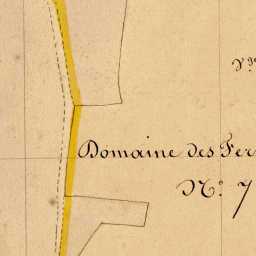 Domaine des Fer
N.º 7